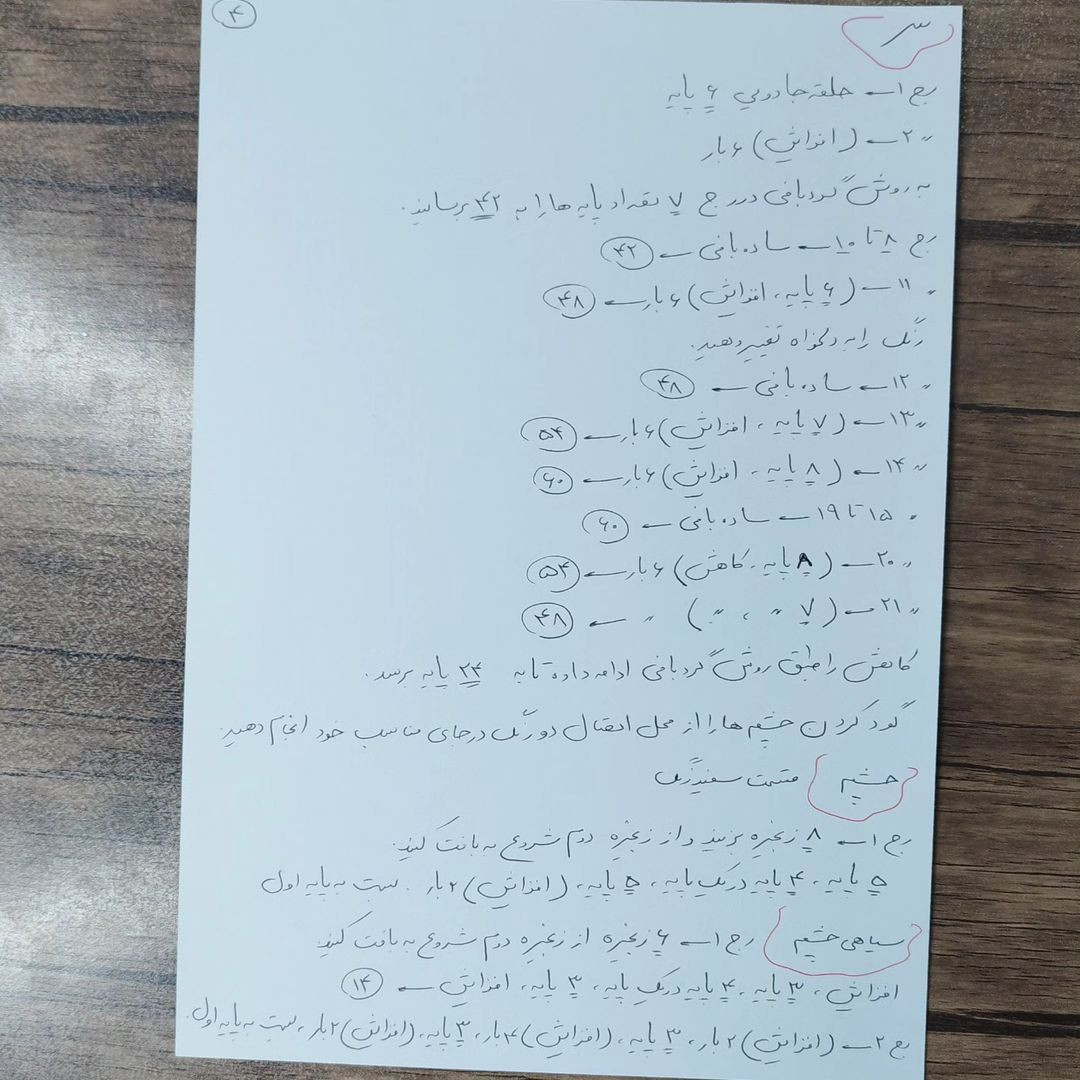 ۴
سر
رج ۱ ← حلقه جادویی ۶ پایه
〃 ۲ ← (افزایش) ۶ بار
به روش گردبافی در رج ۷ تعداد پایه ها را به ۴۲ برسانید.
رج ۸ تا ۱۰ ← ساده بافی ← ۴۲
〃 ۱۱ ← (۶ پایه، افزایش) ۶ بار ← ۴۸
رنگ را به دلخواه تغییر دهید.
〃 ۱۲ ← ساده بافی ← ۴۸
〃 ۱۳ ← (۷ پایه، افزایش) ۶ بار ← ۵۴
〃 ۱۴ ← (۸ پایه، افزایش) ۶ بار ← ۶۰
〃 ۱۵ تا ۱۹ ← ساده بافی ← ۶۰
〃 ۲۰ ← (۸ پایه، کاهش) ۶ بار ← ۵۴
〃 ۲۱ ← (۷ 〃 ، 〃) 〃 ← ۴۸
کاهش را طبق روش گردبافی ادامه داده تا به ۲۴ پایه برسد.
گود کردن چشم ها را از محل اتصال دو رنگ در جای مناسب خود انجام دهید.
چشم قسمت سفید رنگ
رج ۱ ← ۸ زنجیره بزنید و از زنجیره دوم شروع به بافت کنید.
۵ پایه، ۴ پایه در یک پایه، ۵ پایه، (افزایش) ۲ بار. بست به پایه اول
سیاهی چشم رج ۱ ← ۶ زنجیره از زنجیره دوم شروع به بافت کنید.
افزایش، ۳ پایه، ۴ پایه در یک پایه، ۳ پایه، افزایش ← ۱۴
رج ۲ ← (افزایش) ۲ بار، ۳ پایه، (افزایش) ۴ بار، ۳ پایه، (افزایش) ۲ بار، بست به پایه اول.